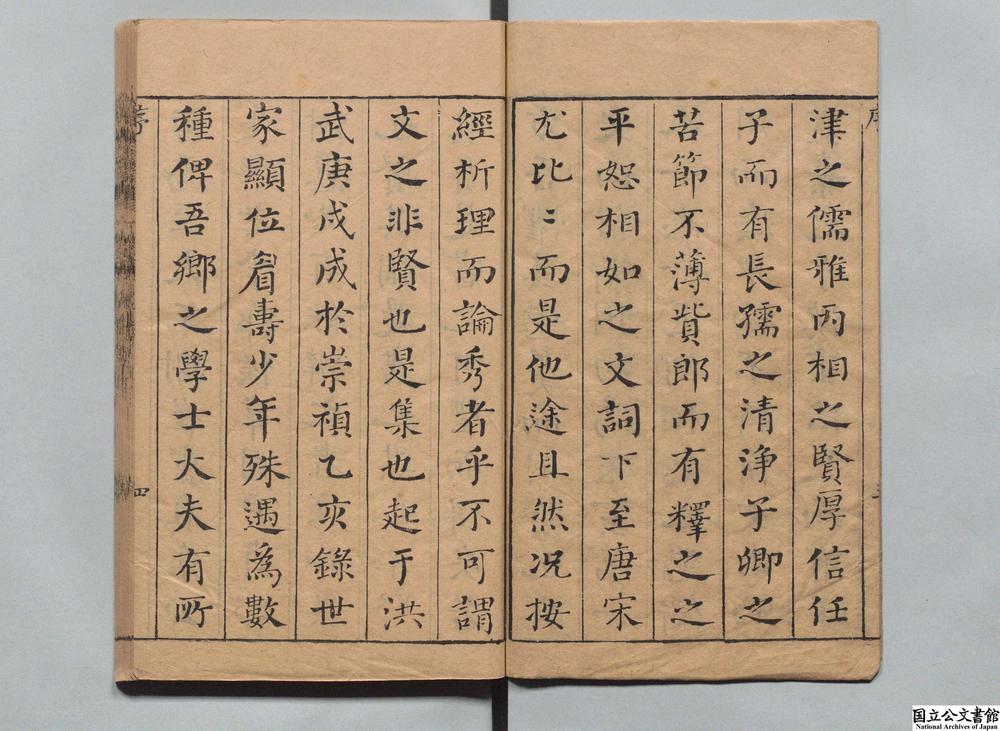 津之儒雅丙相之賢厚信任
子而有長孺之清淨子卿之
苦節不薄貲郎而有釋之之
平恕相如之文詞下至唐宋
尤比〻而是他途且然况按
經析理而論秀者乎不可謂
文之非賢也是集也起于洪
武庚戌成於崇禎乙亥錄世
家顯位眉壽少年殊遇為數
種俾吾鄉之學士大夫有所
序
四
国立公文書館
National Archives of Japan